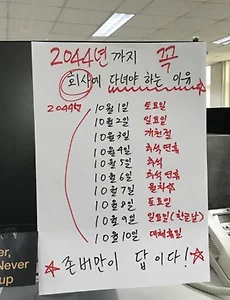 2044년까지 꼭
회사에 다녀야 하는 이유
2044年
10월 1일 토요일
10월 2일 일요일
10월 3일 개천절
10월 4일 추석연휴
10월 5일 추석
10월 6일 추석연휴
10월 7일 연차☆
10월 8일 토요일
10월 9일 일요일(한글날)
10월 10일 대체휴일
☆ 존버만이 답이다! ☆
er,
Never
up